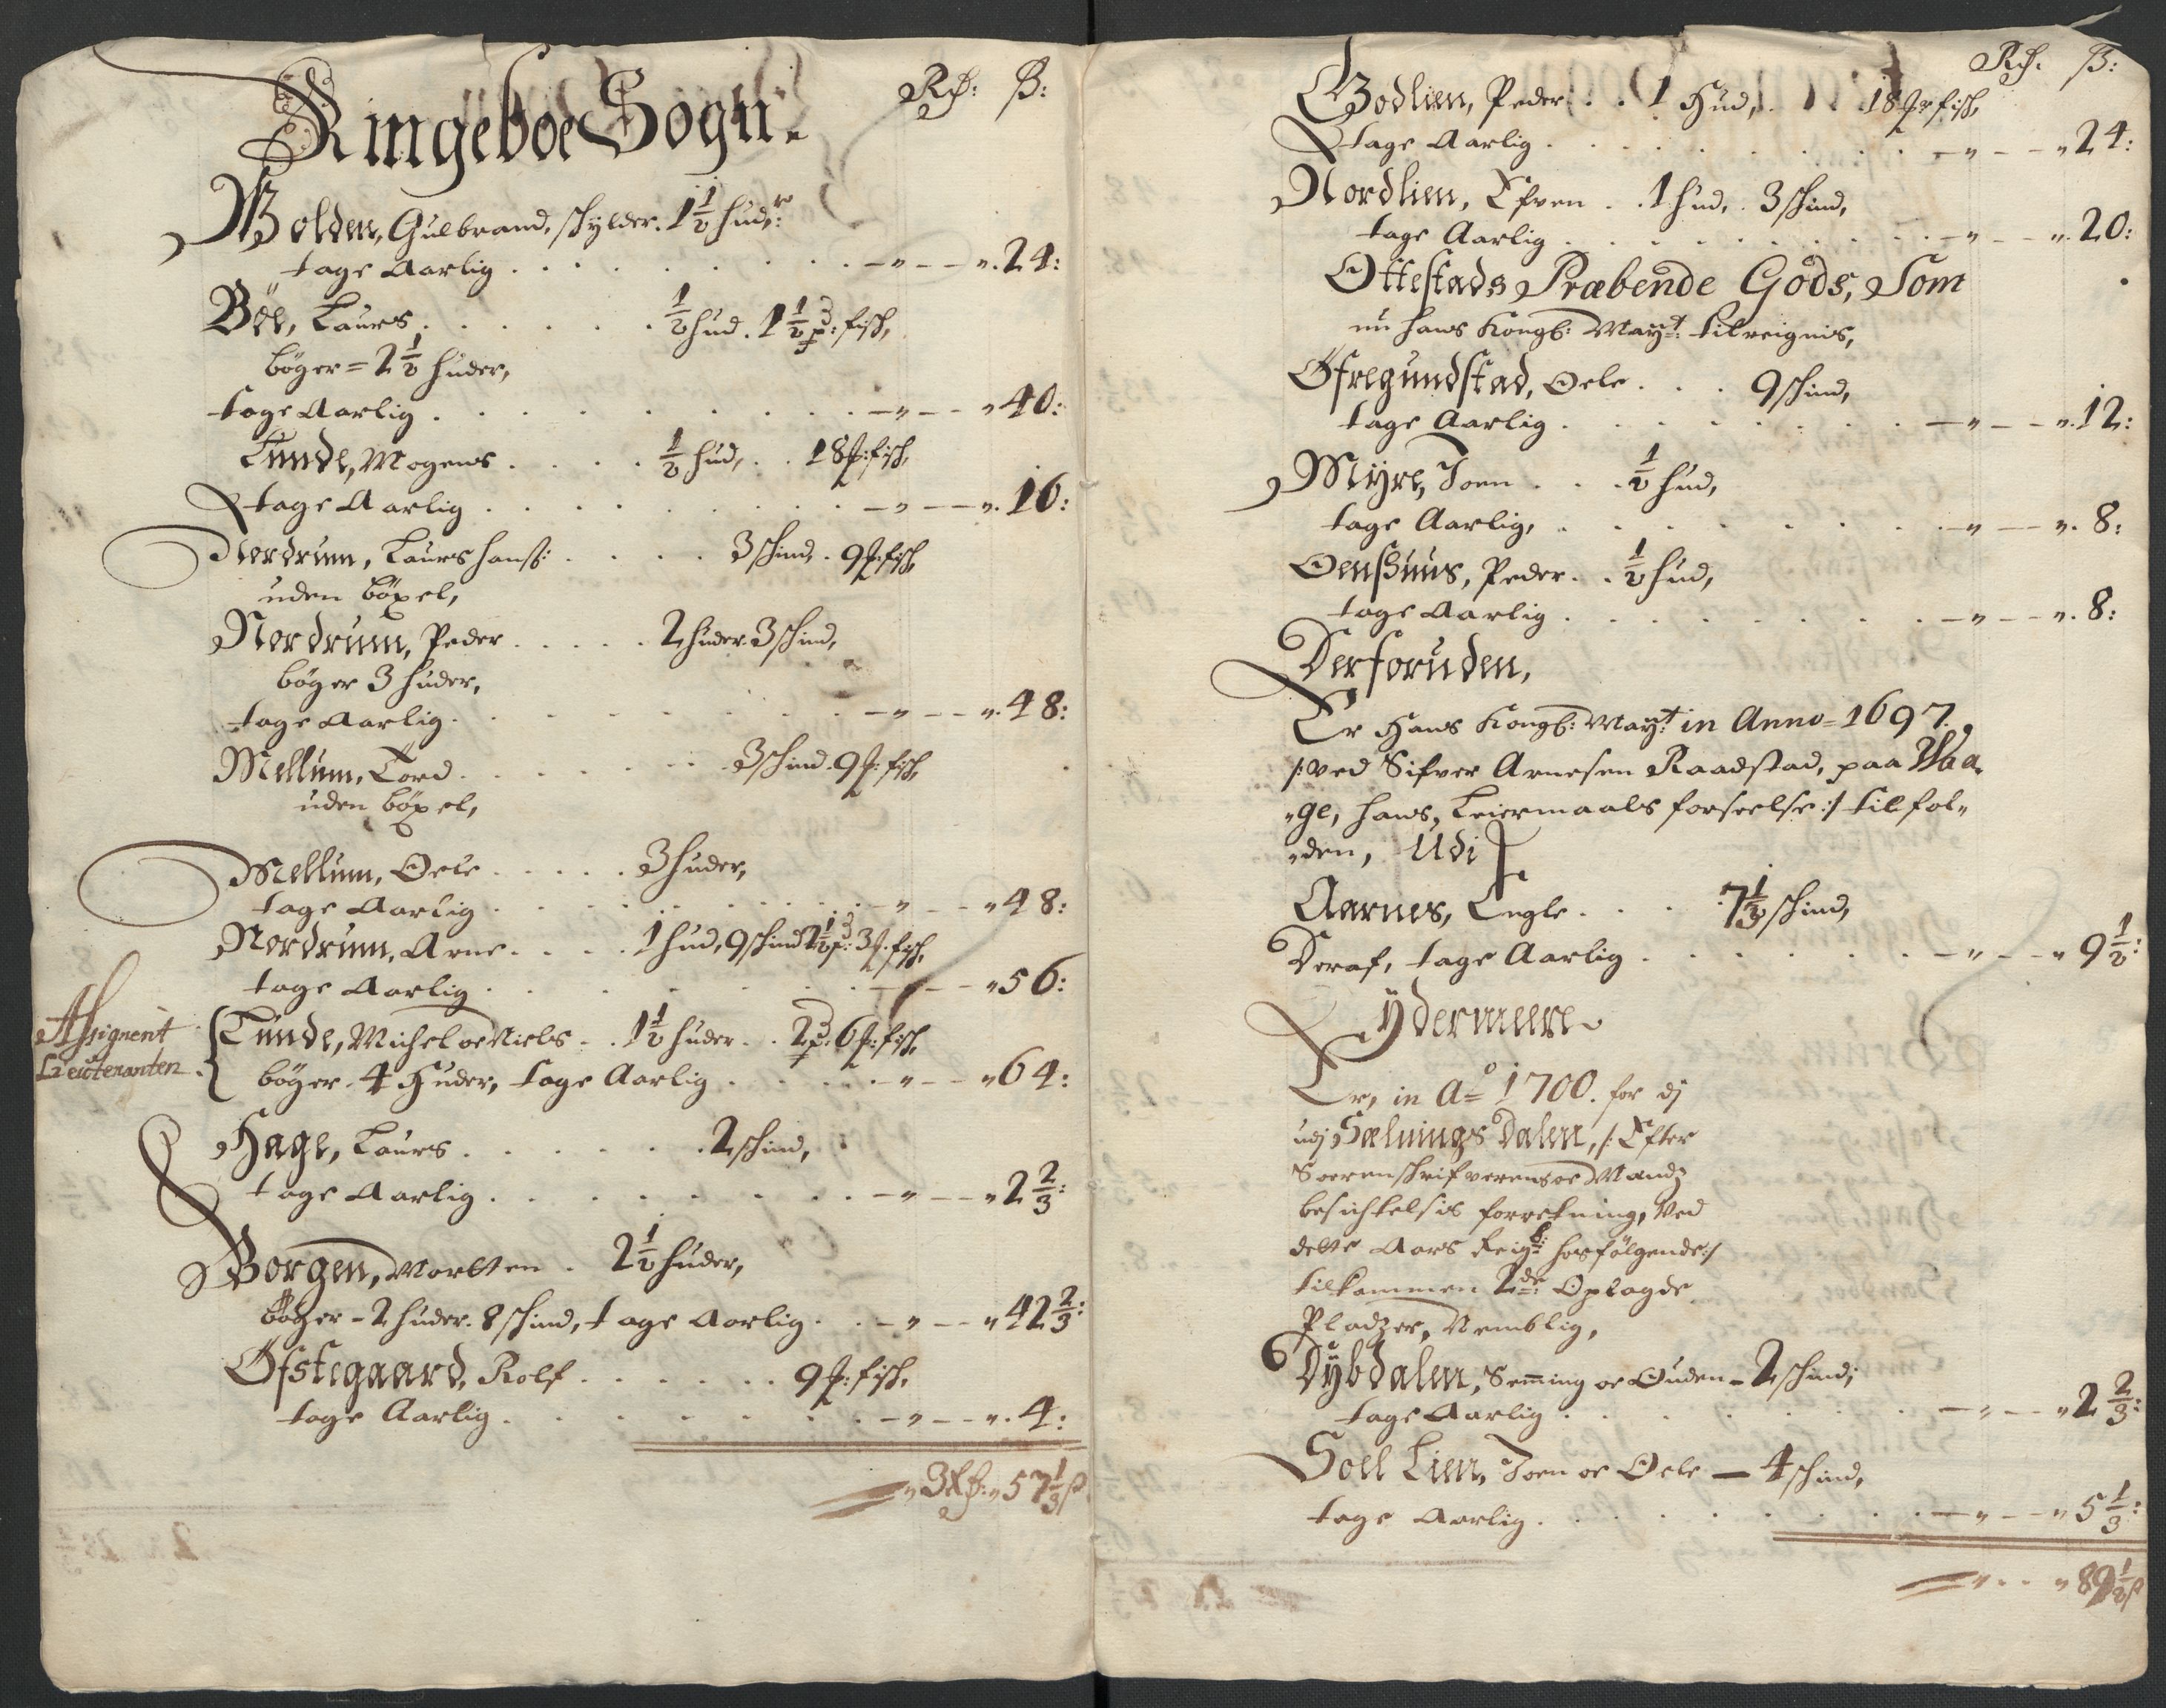 Rd: ß:
Ringeboe Sogn.
Wolden, Gulbrand, skylder. 1½ hud,
tage Aarlig . . . . 24:
Böe, Laurs . . . ½ hud. 1½ p: fisk,
böger = 2½ huder,
tage Aarlig . . . . 40:
Lunde, Mogens . . . . ½ hud, . . 18 fisk,
tage Aarlig . . . . 16:
Nordrum, Laurs Hanß: . . . . 3 skind, . 9 fisk,
uden böxel,
Nordrum, Peder . . . . 2 huder. 3 skind,
böger 3 huder,
tage Aarlig . . . . 48:
Mellum, Tord . . . . 3 skind. 9 fisk,
uden böxel,
Mellum, Oele . . . . 3 huder,
tage Aarlig . . . . 48:
Nordrum, Arne . . . . 1 hud, 9 skind 3 fisk,
tage Aarlig . . . . 56:
Assignerit Lieutenanten
Tunde, Michel oc Niels . . 1½ huder . . 2 p: 6 fisk,
böger 4 Huder, tage Aarlig . . . . 64:
Hage, Laurs . . . . 2 skind,
tage Aarlig . . . . 2⅔:
Borgen, Morten . 2½ huder,
böger - 2 huder. 8 skind, tage Aarlig . . 42⅔:
Øfstegaard, Rolf . . . . 9 fisk,
tage Aarlig . . . . 4:
3 Rd: 57⅓ ß
Rd. ß:
Bodlien, Peder . . 1 Hud, . . 18 fisk,
tage Aarlig . . . . 24:
Nordlien, Efven . . 1 hud, . 3 skind,
tage Aarlig . . . . 20:
Ottestads Præbende Gods, Som
nu hans Kongl: Mayt: tilreignis,
Øfregundstad, Oele . . . 9 skind,
tage Aarlig . . . . 12:
Myre, Joen . . . ½ hud,
tage Aarlig, . . . . 8:
Oenshuus, Peder . . ½ hud,
tage Aarlig . . . . 8:
Derforuden,
Er Hans Kongl: Mayt: in Anno = 1697.
/: ved Sifver Arnesen Raadstad, paa Waa-
-ge, hans, Leiermaals forseelse :/ tilfal-
-den, Udi
Aarnes, Engle . . . 7½ skind,
Deraf, tage Aarlig . . . . 9½:
Ydermeere
Er, in Ao = 1700. for dj
udj Sælnings Dalen, /: Efter
Soerenskrifverens oc Mandz
besichtelsis forretning, ved
dette Aars Reig: hosfølgende :/
tilkommen 2de: Oplagde
Pladzer, Nemblig,
Dybdalen, Semming oc Ouden - 2 skind;
tage Aarlig . . . . 2⅔:
Soel Lien, Joen oc Oele — 4 skind,
tage Aarlig . . . . 5⅓:
89½ ß